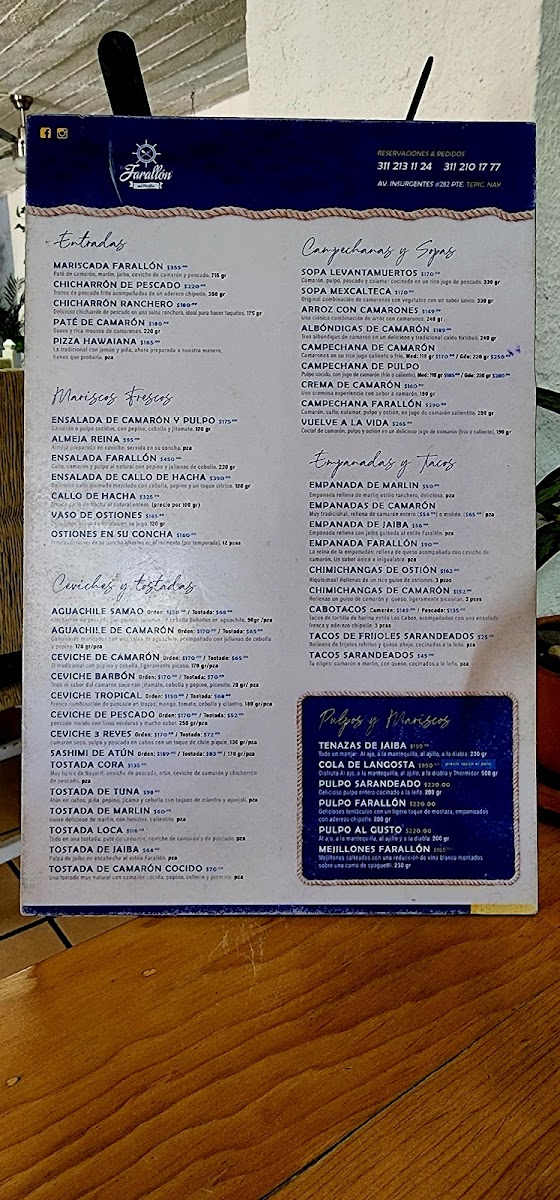 Farallón
RESERVACIONES & PEDIDOS
311 213 11 24 311 210 17 77
AV. INSURGENTES #282 PTE. TEPIC, NAY
Entradas
MARISCADA FARALLÓN $355.00
Paté de camarón, marlin, jaiba, ceviche de camarón y pescado. 715 gr
CHICHARRÓN DE PESCADO $220.00
Trozos de pescado frito acompañados de un aderezo chipotle. 350 gr
CHICHARRÓN RANCHERO $180.00
Delicioso chicharrón de pescado en una salsa ranchera, ideal para hacer taquitos. 175 gr
PATÉ DE CAMARÓN $180.00
Suave y rica mousse de camarones. 220 gr
PIZZA HAWAIANA $165.00
La tradicional con jamón y piña, ahora preparada a nuestra manera,
tienes que probarla. pza
Mariscos Frescos
ENSALADA DE CAMARÓN Y PULPO $175.00
Camarón o pulpo cocidos, con pepino, cebolla y jitomate. 120 gr
ALMEJA REINA $95.00
Almeja preparada en ceviche, servida en su concha. pza
ENSALADA FARALLÓN $450.00
Callo, camarón y pulpo al natural con pepino y julianas de cebolla. 220 gr
ENSALADA DE CALLO DE HACHA $390.00
CALLO DE HACHA $325.00
(precio por 100 gr)
VASO DE OSTIONES $185.00
120 gr
OSTIONES EN SU CONCHA $160.00
(por temporada). 12 pzas
Ceviches y tostadas
AGUACHILE SAMAO Orden: $150.00 / Tostada: $68.00
AGUACHILE DE CAMARÓN Orden: $170.00 / Tostada: $65.00
y pepino. 170 gr/pza
CEVICHE DE CAMARÓN Orden: $170.00 / Tostada: $65.00
El tradicional con pepino y cebolla, ligeramente picoso. 170 gr/pza
CEVICHE BARBÓN Orden: $170.00 / Tostada: $70.00
CEVICHE TROPICAL Orden: $150.00 / Tostada: $68.00
Fresca combinación de pescado en trozos, mango, tomate, cebolla y cilantro. 180 gr/pza
CEVICHE DE PESCADO Orden: $170.00 / Tostada: $52.00
pescado molido con finas verduras y mucho sabor. 250 gr/pza
CEVICHE 3 REYES Orden: $170.00 / Tostada: $72.00
camarón seco, pulpo y pescado en cubos con un toque de chile piquín. 130 gr/pza
SASHIMI DE ATÚN Orden: $189.00 / Tostada: $83.00 / 170 gr/pza
TOSTADA CORA $135.00
Muy típica de Nayarit, ceviche de pescado, atún, ceviche de camarón y chicharrón
de pescado. pza
TOSTADA DE TUNA $98.00
Atún en cubos, piña, pepino, jícama y cebolla con toques de cilantro y ajonjolí. pza
TOSTADA DE MARLIN $60.00
TOSTADA LOCA $116.00
Todo en una tostada: paté de camarón, ceviche de camarón y de pescado. pza
TOSTADA DE JAIBA $64.00
Pulpa de jaiba en escabeche al estilo Farallón. pza
TOSTADA DE CAMARÓN COCIDO $70.00
Una tostada muy natural con camarón cocido, pepino, cebolla y jitomate. pza
Campechanas y Sopas
SOPA LEVANTAMUERTOS $170.00
Camarón, pulpo, pescado y calamar cocinado en un rico jugo de pescado. 330 gr
SOPA MEXCALTECA $170.00
Original combinación de camarones con vegetales con un sabor único. 330 gr
ARROZ CON CAMARONES $149.00
Una clásica combinación de arroz con camarones. 240 gr
ALBÓNDIGAS DE CAMARÓN $189.00
Tres albóndigas de camarón en un delicioso y tradicional caldo tlaxtihuil. 240 gr
CAMPECHANA DE CAMARÓN
Camarones en su rico jugo caliente o frío. Med: 110 gr $170.00 / Gde: 220 gr $250.00
CAMPECHANA DE PULPO
Pulpo cocido, con jugo de camarón (frío o caliente). Med: 110 gr $185.00 / Gde: 230 gr $280.00
CREMA DE CAMARÓN $160.00
Una cremosa experiencia con sabor a camarón. 190 gr
CAMPECHANA FARALLÓN $290.00
Camarón, callo, calamar, pulpo y ostión, en jugo de camarón calientito. 250 gr
VUELVE A LA VIDA $265.00
Coctel de camarón, pulpo y ostión en un delicioso jugo de camarón (frío o caliente). 190 gr
Empanadas y Tacos
EMPANADA DE MARLIN $50.00
Empanada rellena de marlin estilo ranchero, deliciosa. pza
EMPANADAS DE CAMARÓN
Muy tradicional, rellena de camarón entero ($64.00) o molido. ($65.00) pza
EMPANADA DE JAIBA $56.00
Empanada rellena con jaiba guisada al estilo Farallón. pza
EMPANADA FARALLÓN $90.00
La reina de la empanadas: rellena de queso acompañada con ceviche de
camarón. Un sabor único e inigualable. pza
CHIMICHANGAS DE OSTIÓN $162.00
Riquísimas! Rellenas de un rico guiso de ostiones. 3 pzas
CHIMICHANGAS DE CAMARÓN $192.00
Rellenas un guiso de camarón y queso, ligeramente picositas. 3 pzas
CABOTACOS Camarón: $149.00 / Pescado: $135.00
Tacos de tortilla de harina estilo Los Cabos, acompañados con una ensalada
fresca y aderezo chipotle. 3 pzas
TACOS DE FRIJOLES SARANDEADOS $25.00
Rellenos de frijoles refritos y queso añejo, cocinados a la leña. pza
TACOS SARANDEADOS $45.00
Tu eliges: camarón o marlin, con queso, cocinados a la leña. pza
Pulpos y Mariscos
TENAZAS DE JAIBA $199.00
Todo un manjar. Al ajo, a la mantequilla, al ajillo, a la diabla. 230 gr
COLA DE LANGOSTA $850.00 precio según el peso
Disfruta Al ajo, a la mantequilla, al ajillo, a la diabla y Thermidor. 500 gr
PULPO SARANDEADO $220.00
Delicioso pulpo entero cocinado a la leña. 200 gr
PULPO FARALLÓN $220.00
Deliciosos tentáculos con un ligero toque de mostaza, empanizados
con aderezo chipotle. 200 gr
PULPO AL GUSTO $220.00
Al ajo, a la mantequilla, al ajillo y a la diabla. 200 gr
MEJILLONES FARALLÓN
Mejillones salteados con una reducción de vino blanco montados
sobre una cama de spaguetti. 230 gr